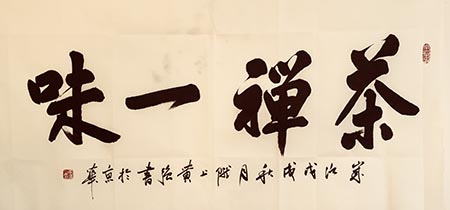 茶禅一味
歲次戊戌秋月陇上黄强書於京華